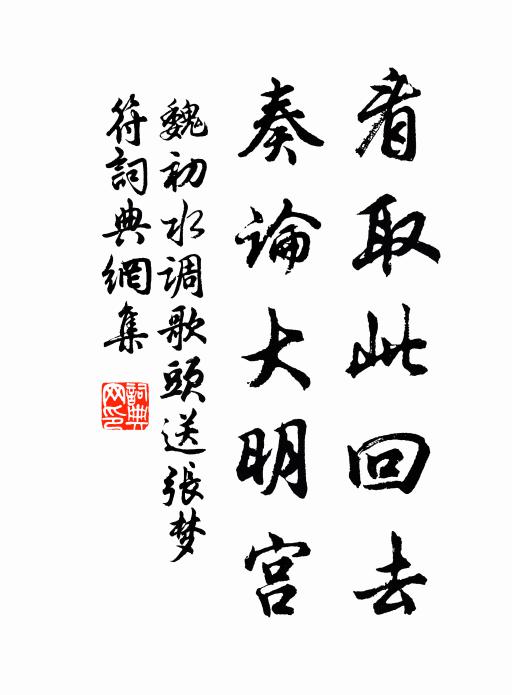 看取此回去
奏論大明宫
魏初水调歌頭送張梦
符詞典網集
詞典網印